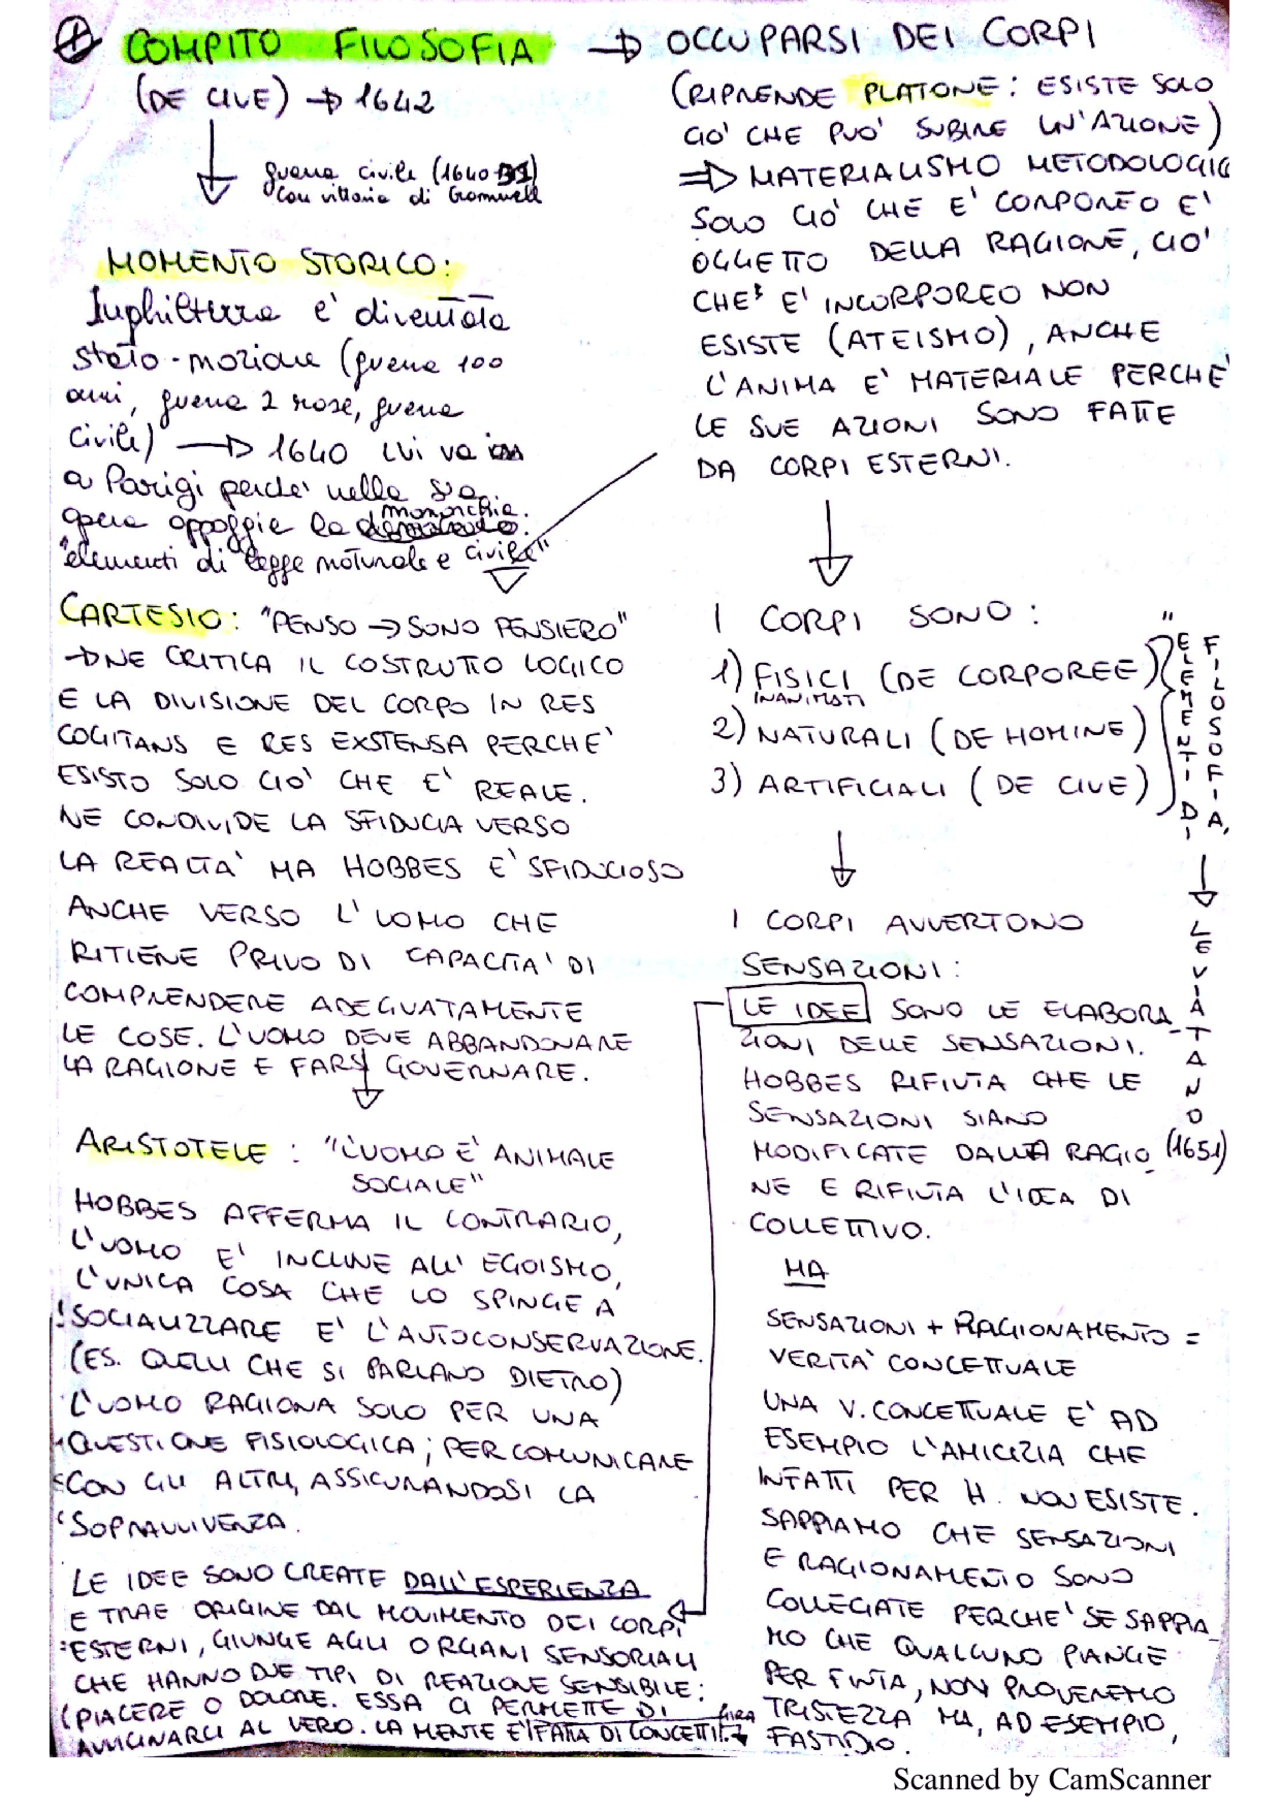 ⊕ COMPITO FILOSOFIA → OCCUPARSI DEI CORPI
(DE CIVE) → 1642
guerra civile (1640
con vittoria di Cromwell
MOMENTO STORICO:
Inghilterra e' diventata
stato-nazione (guerra 100
anni, guerra 2 rose, guerra
civile) → 1640 lui va
a Parigi perche' nella sua
opera appoggia la monarchia.
"elementi di legge naturale e civile"
(RIPRENDE PLATONE: ESISTE SOLO
CIO' CHE PUO' SUBIRE UN'AZIONE)
⇒ MATERIALISMO METODOLOGIC
SOLO CIO' CHE E' CORPOREO E'
OGGETTO DELLA RAGIONE, CIO'
CHE E' INCORPOREO NON
ESISTE (ATEISMO), ANCHE
L'ANIMA E' MATERIALE PERCHE'
LE SUE AZIONI SONO FATTE
DA CORPI ESTERNI.
CARTESIO: "PENSO → SONO PENSIERO"
→ NE CRITICA IL COSTRUTTO LOGICO
E LA DIVISIONE DEL CORPO IN RES
COGITANS E RES EXSTENSA PERCHE'
ESISTO SOLO CIO' CHE E' REALE.
NE CONDIVIDE LA SFIDUCIA VERSO
LA REALTA' MA HOBBES E' SFIDUCIOSO
ANCHE VERSO L'UOMO CHE
RITIENE PRIVO DI CAPACITA' DI
COMPRENDERE ADEGUATAMENTE
LE COSE. L'UOMO DEVE ABBANDONARE
LA RAGIONE E FARSI GOVERNARE.
ARISTOTELE: "L'UOMO E' ANIMALE
SOCIALE"
HOBBES AFFERMA IL CONTRARIO,
L'UOMO E' INCLINE ALL' EGOISMO,
L'UNICA COSA CHE LO SPINGE A
SOCIALIZZARE E' L'AUTOCONSERVAZIONE.
(ES. QUELLI CHE SI PARLANO DIETRO)
L'UOMO RAGIONA SOLO PER UNA
QUESTIONE FISIOLOGICA; PER COMUNICARE
CON GLI ALTRI, ASSICURANDOSI LA
SOPRAVVIVENZA.
LE IDEE SONO CREATE DALL'ESPERIENZA
E TRAE ORIGINE DAL MOVIMENTO DEI CORPI
ESTERNI, GIUNGE AGLI ORGANI SENSORIALI
CHE HANNO DUE TIPI DI REAZIONE SENSIBILE:
(PIACERE O DOLORE. ESSA CI PERMETTE DI
AVVICINARCI AL VERO. LA MENTE E' FATTA DI CONCETTI. GIRA →
I CORPI SONO:
1) FISICI (DE CORPOREE)
INANIMATI
2) NATURALI (DE HOMINE)
3) ARTIFICIALI (DE CIVE)
"ELEMENTI DI FILOSOFIA,
→ LEVIATANO
(1651)
I CORPI AVVERTONO
SENSAZIONI:
LE IDEE SONO LE ELABORA-
ZIONI DELLE SENSAZIONI.
HOBBES RIFIUTA CHE LE
SENSAZIONI SIANO
MODIFICATE DALLA RAGIO-
NE E RIFIUTA L'IDEA DI
COLLETTIVO.
MA
SENSAZIONI + RAGIONAMENTO =
VERITA' CONCETTUALE
UNA V. CONCETTUALE E' AD
ESEMPIO L'AMICIZIA CHE
INFATTI PER H. NON ESISTE.
SAPPIAMO CHE SENSAZIONI
E RAGIONAMENTO SONO
COLLEGATE PERCHE' SE SAPPIA-
MO CHE QUALCUNO PIANGE
PER FINTA, NON PROVEREMO
TRISTEZZA MA, AD ESEMPIO,
FASTIDIO.
Scanned by CamScanner